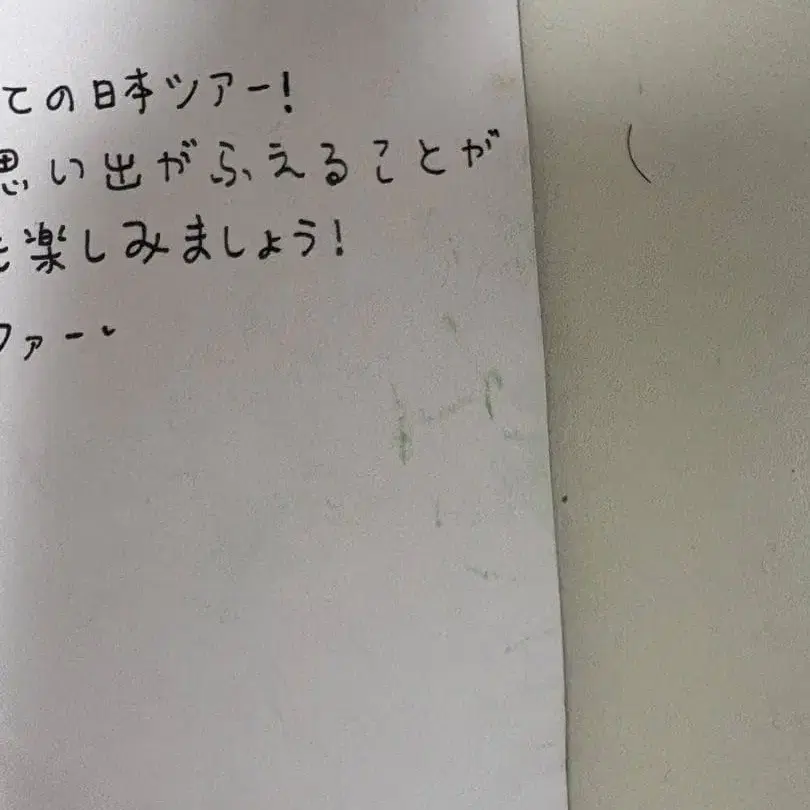 ての日本ツアー!
思い出がふえることが
を楽しみましょう!
ファー〜